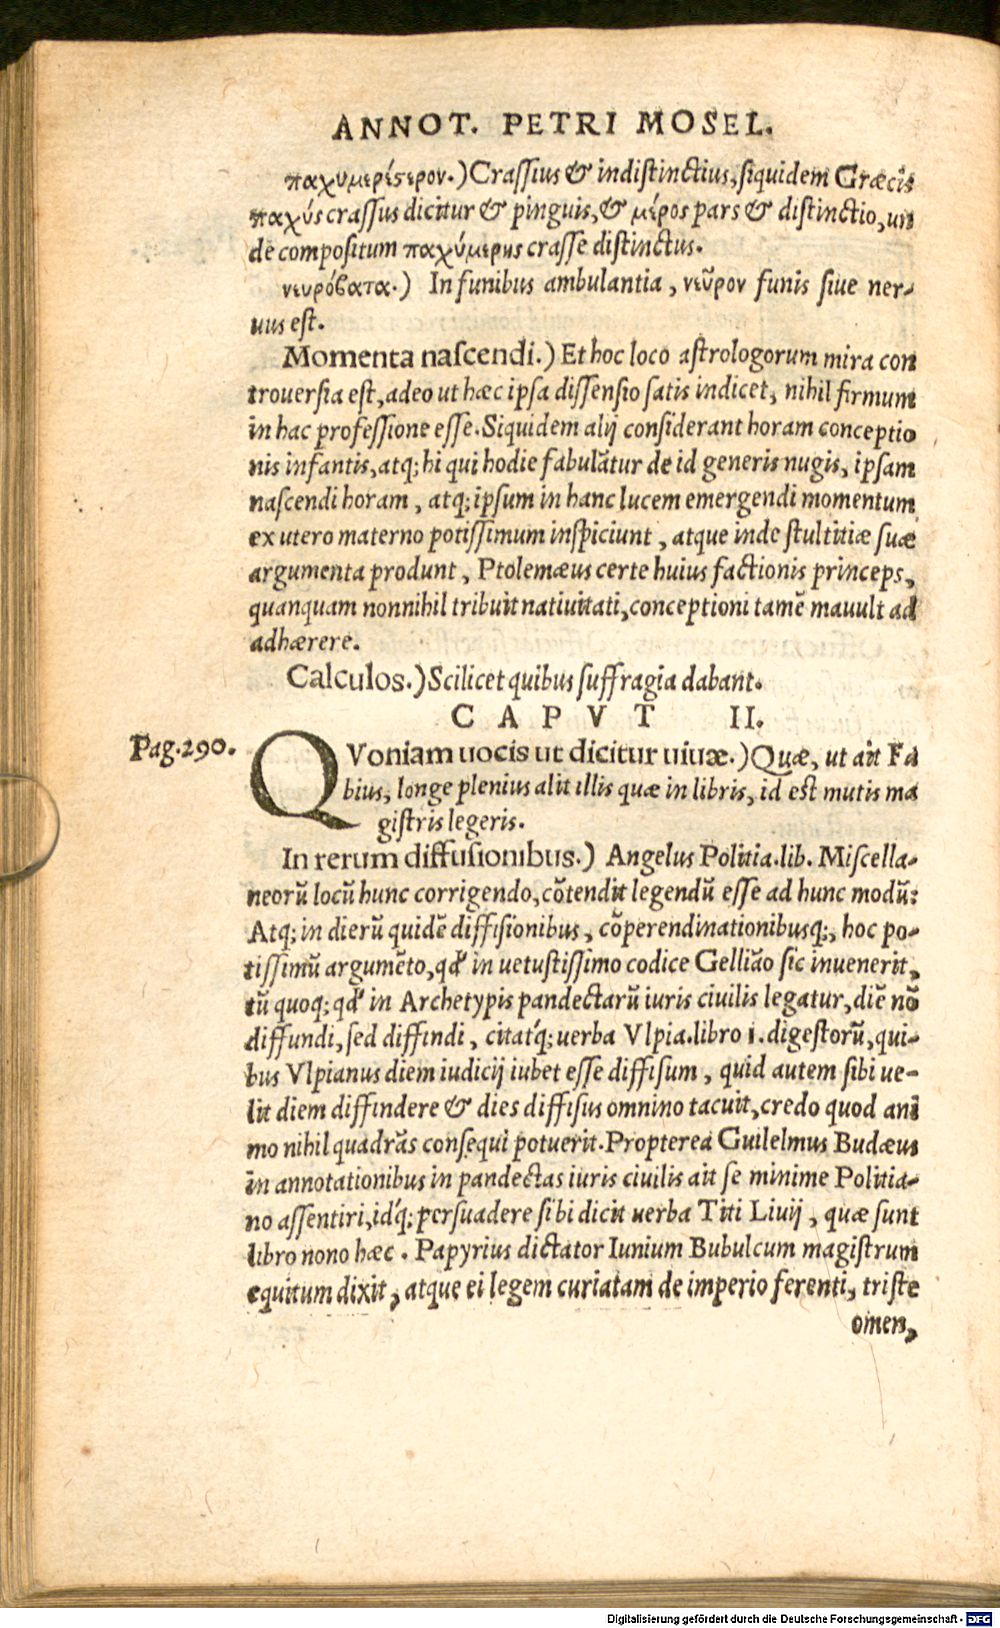 ANNOT. PETRI MOSEL.
παχυμερέςερον.) Crassius & indistinctius, siquidem Græcis
παχύς crassus dicitur & pinguis, & μέρος pars & distinctio, un
de compositum παχύμερης crasse distinctus.
νευρόβατα.) In funibus ambulantia, νεῦρον funis siue ner-
uus est.
Momenta nascendi.) Et hoc loco astrologorum mira con
trouersia est, adeo ut hæc ipsa dissensio satis indicet, nihil firmum
in hac professione esse. Siquidem alij considerant horam conceptio
nis infantis, atq; hi qui hodie fabulātur de id generis nugis, ipsam
nascendi horam, atq; ipsum in hanc lucem emergendi momentum
ex utero materno potissimum inspiciunt, atque inde stultitiæ suæ
argumenta produnt, Ptolemæus certe huius factionis princeps,
quanquam nonnihil tribuit natiuitati, conceptioni tamē mauult ad
adhærere.
Calculos.) Scilicet quibus suffragia dabant.
CAPVT II.
Pag. 290.
QVoniam uocis ut dicitur uiuæ.) Quæ, ut ait Fa
bius, longe plenius alit illis quæ in libris, id est mutis ma
gistris legeris.
In rerum diffusionibus.) Angelus Politia. lib. Miscella-
neorū locū hunc corrigendo, cōtendit legendū esse ad hunc modū:
Atq; in dierū quidē diffisionibus, cōperendinationibusq;, hoc po-
tissimū argumēto, qđ in uetustissimo codice Gelliāo sic inuenerit,
tū quoq; qđ in Archetypis pandectarū iuris ciuilis legatur, diē nō
diffundi, sed diffindi, citatq́; uerba Vlpia. libro 1. digestorū, qui-
bus Vlpianus diem iudicij iubet esse diffisum, quid autem sibi ue-
lit diem diffindere & dies diffisus omnino tacuit, credo quod ani
mo nihil quadrās consequi potuerit. Propterea Guilelmus Budæus
in annotationibus in pandectas iuris ciuilis ait se minime Politia-
no assentiri, idq́; persuadere sibi dicit uerba Titi Liuij, quæ sunt
libro nono hæc. Papyrius dictator Iunium Bubulcum magistrum
equitum dixit, atque ei legem curiatam de imperio ferenti, triste
omen,
Digitalisierung gefördert durch die Deutsche Forschungsgemeinschaft - DFG